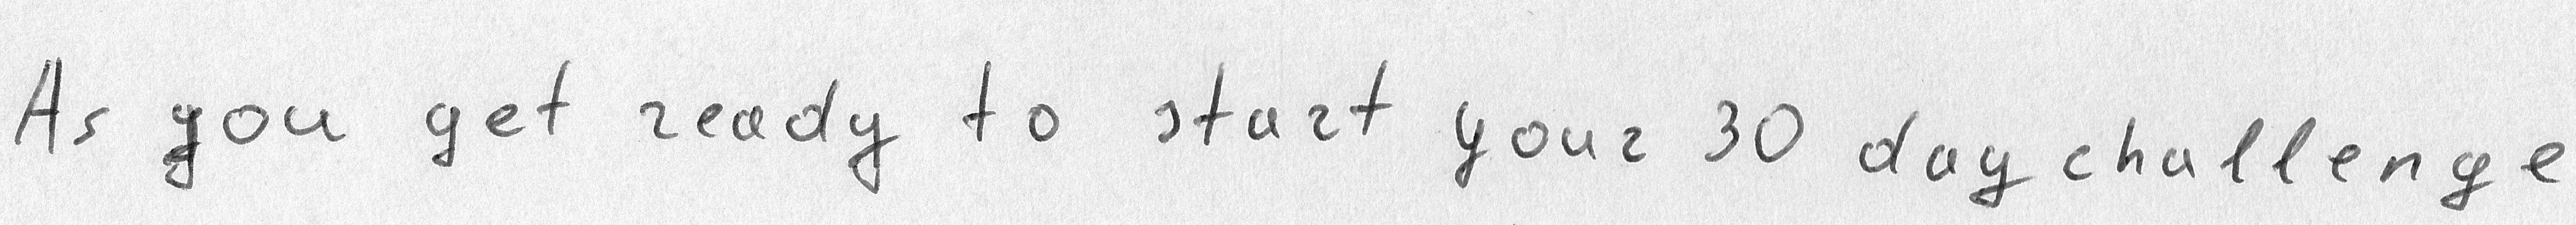 As you get ready to start your 30 day challenge